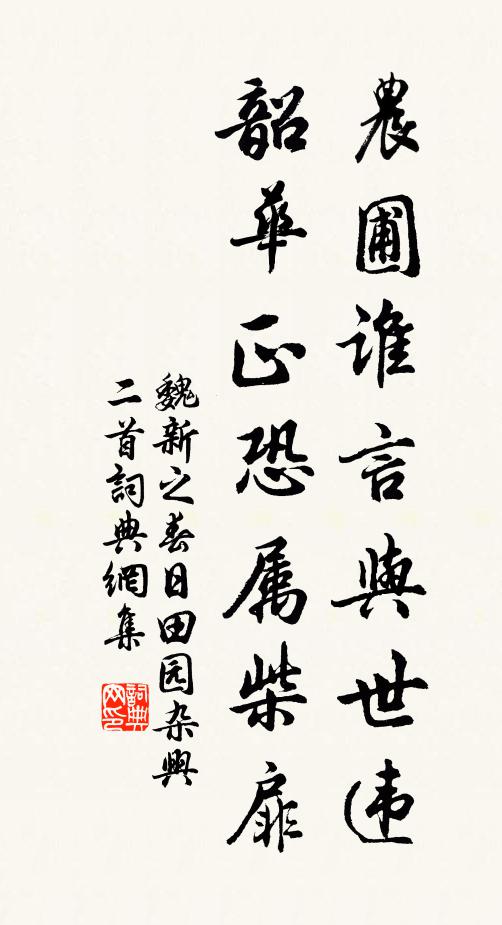 農圃谁言與世违
韶華正恐属柴扉
魏新之春日田园杂興
二首詞典網集
詞典网印